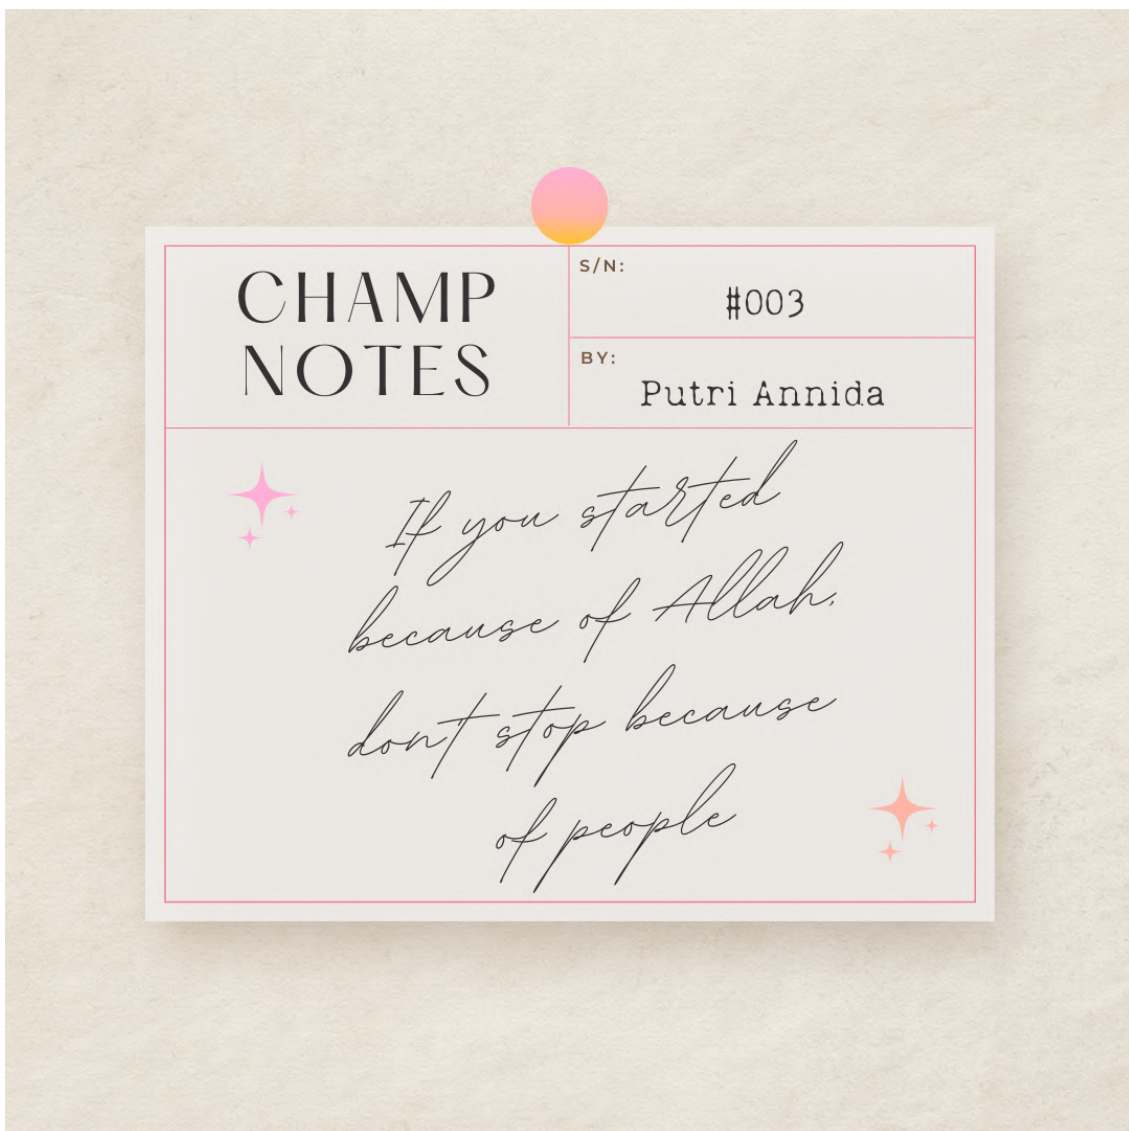 CHAMP
NOTES
S/N:
#003
BY:
Putri Annida
If you started
because of Allah,
don't stop because
of people